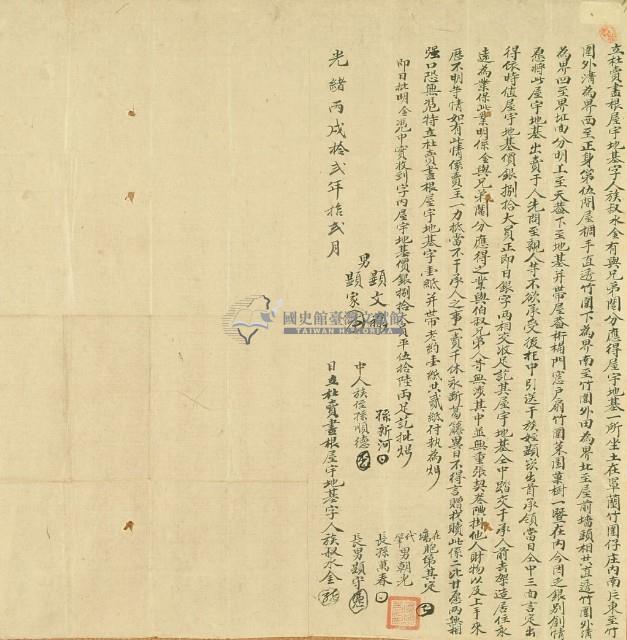 立杜賣盡根屋宇地基字人族叔水金有與兄弟鬮分應得屋宇地基一所坐土在罩蘭竹圍仔庄內南片東至竹
圍外溝為界西至正身第伍間屋桷手直透竹圍下為界南至竹圍外田為界北至屋前墻頭相廿直透竹圍外溝
為界四至界址面分明上至天蓋下至地基并帶屋蓋桁桷門窓戶扇竹圍菜園菓樹一暨在內今因乏銀別創情
愿將此屋宇地基出賣于人先問至親人等不欲承受後托中引送于族姪顯崁出首承領當日仝中三面言定出
得依時值屋宇地基價銀捌拾大員正即日銀字兩相交收足訖其屋宇地基仝中踏交于承人前去架造居住永
遠為業保此業明係金與兄弟鬮分應得之業與伯叔兄弟人等無涉其中並無重張契卷典掛他人財物以及上手來
歷不明等情如有此情係賣主一力抵當不干承人之事一賣千休永斷葛籐異日不得言贈找贖此係二比甘愿兩無相
强口恐無憑特立杜賣盡根屋宇地基字壹紙并帶老約壹紙共貳紙付執為炤
即日批明仝憑中實收到字內屋宇地基價銀捌拾大員平伍拾陸兩足訖批炤
在塲胞弟其定
代筆男朝光
孫新河
長孫萬春
中人族侄孫順德
長男顯守
男顯文
顯家
光緒丙戌拾弍年拾弍月 日立杜賣盡根屋宇地基字人族叔水金
國史館臺灣文獻館
TAIWAN HISTORICA